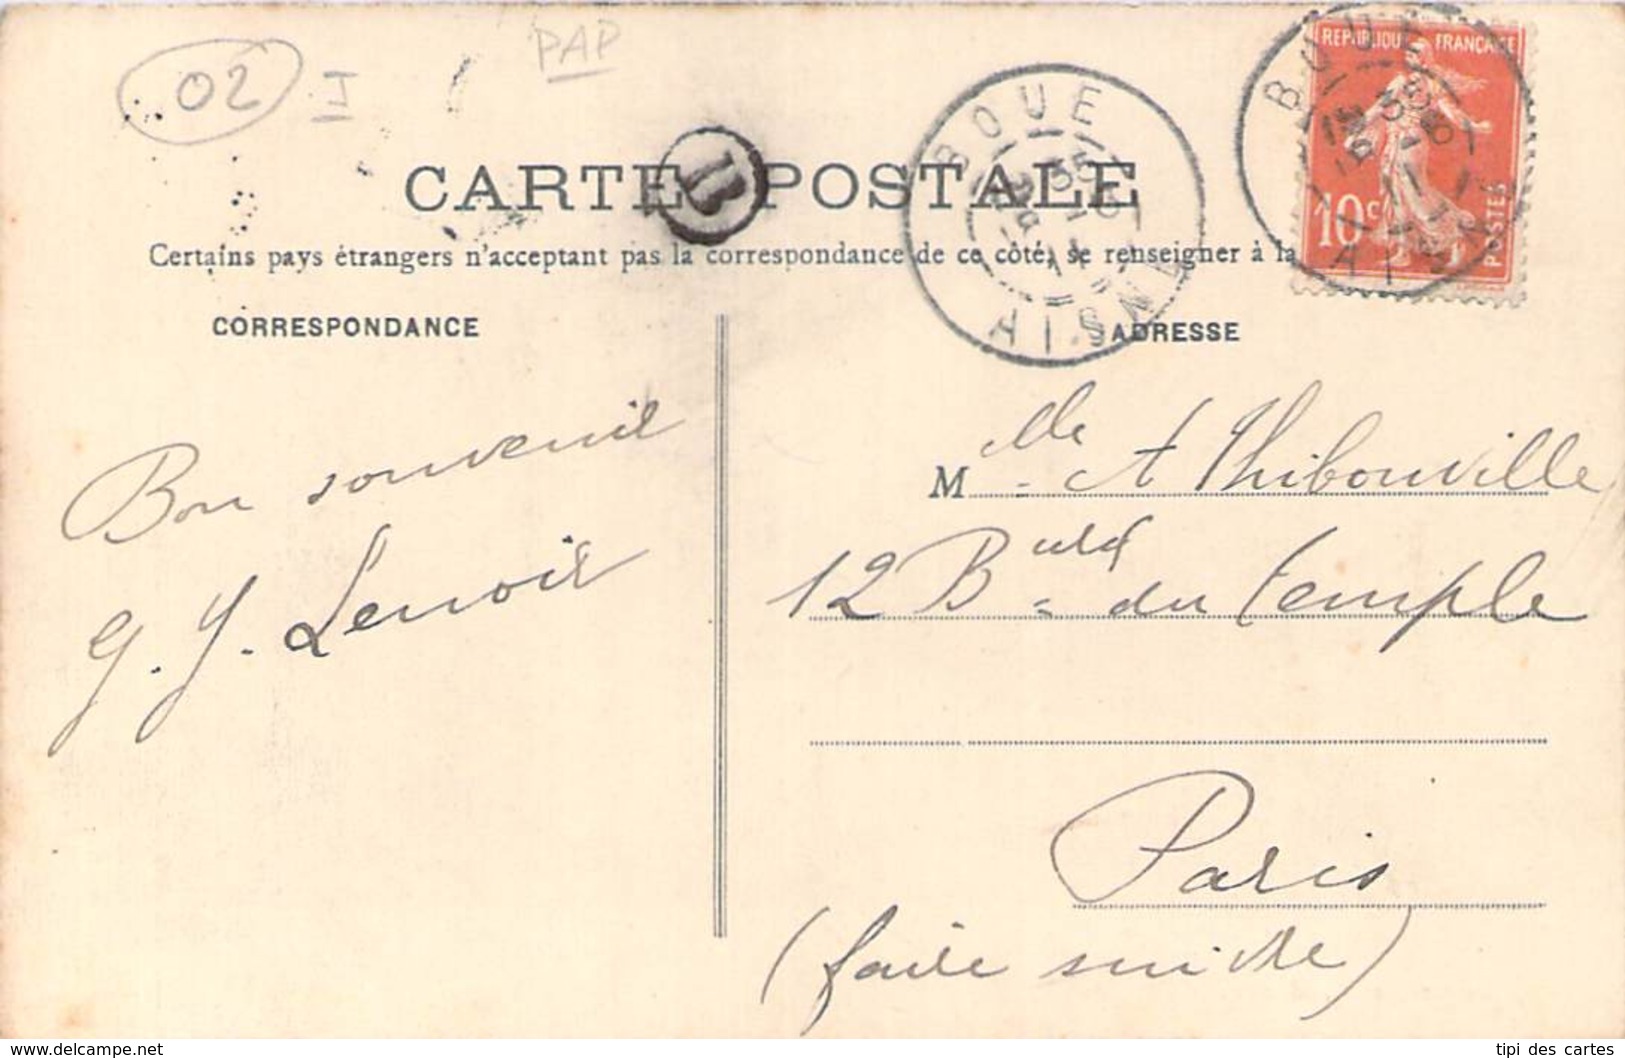 02
I
PAP
REPUBLIQUE FRANÇAISE
10c
POSTES
BOUE
AISNE
BOUE
AISNE
CARTE POSTALE
B
Certains pays étrangers n'acceptant pas la correspondance de ce côté, se renseigner à la
CORRESPONDANCE
ADRESSE
Bon souvenir
G. J. Lenoir
Mlle A Thibouville
12 Bould du temple
Paris
(faire suivre)
https://www.delcampe.net
tipi des cartes